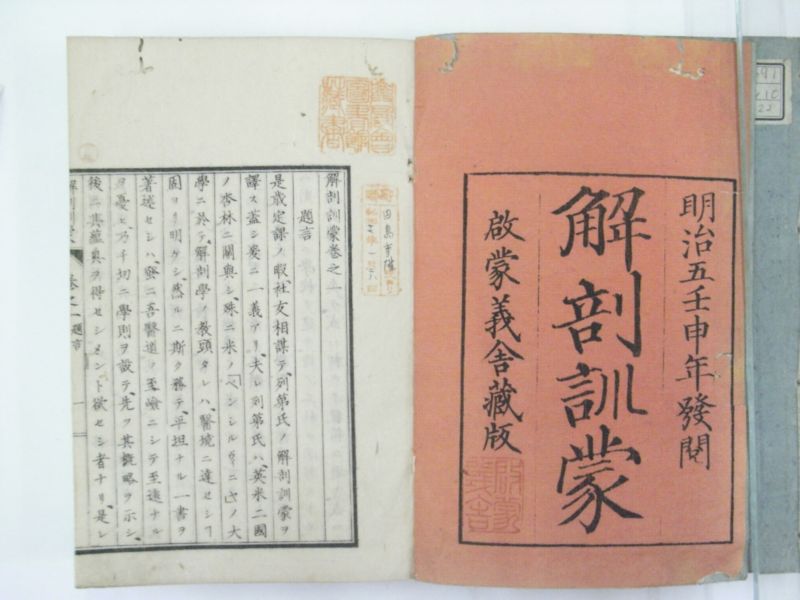 明治五壬申年發閲
解剖訓蒙
啟蒙義舎藏版
解剖訓蒙卷之一
題言
是歳定課ノ暇社友相謀テ、列第氏ノ解剖訓蒙ヲ
譯ス蓋シ爰ニ一義アリ、夫レ列第氏ハ、英米二國
ノ杏林ニ關與シ、殊ニ米ノ「ペンシル
ノ大
學ニ於テ、解剖學ノ教頭タレハ、醫境ニ達セシヿ
固ヨリ明ケシ、然ルニ斯ク務テ、平坦ナル一書ヲ
著述セシハ、
吾醫道ノ至嶮ニシテ至遠ナル
ヲ憂ヒ、乃チ切ニ學則ヲ設テ、先ヲ其概略ヲ示シ、
後ニ其蘊奥ヲ得セシメント欲セシ者ナリ、是レ
解剖訓蒙
卷之一題言
一